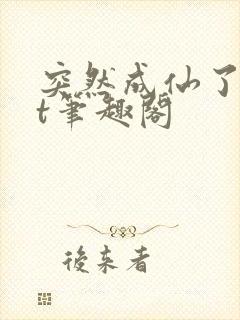 突然成仙了
t筆趣閣
後来者